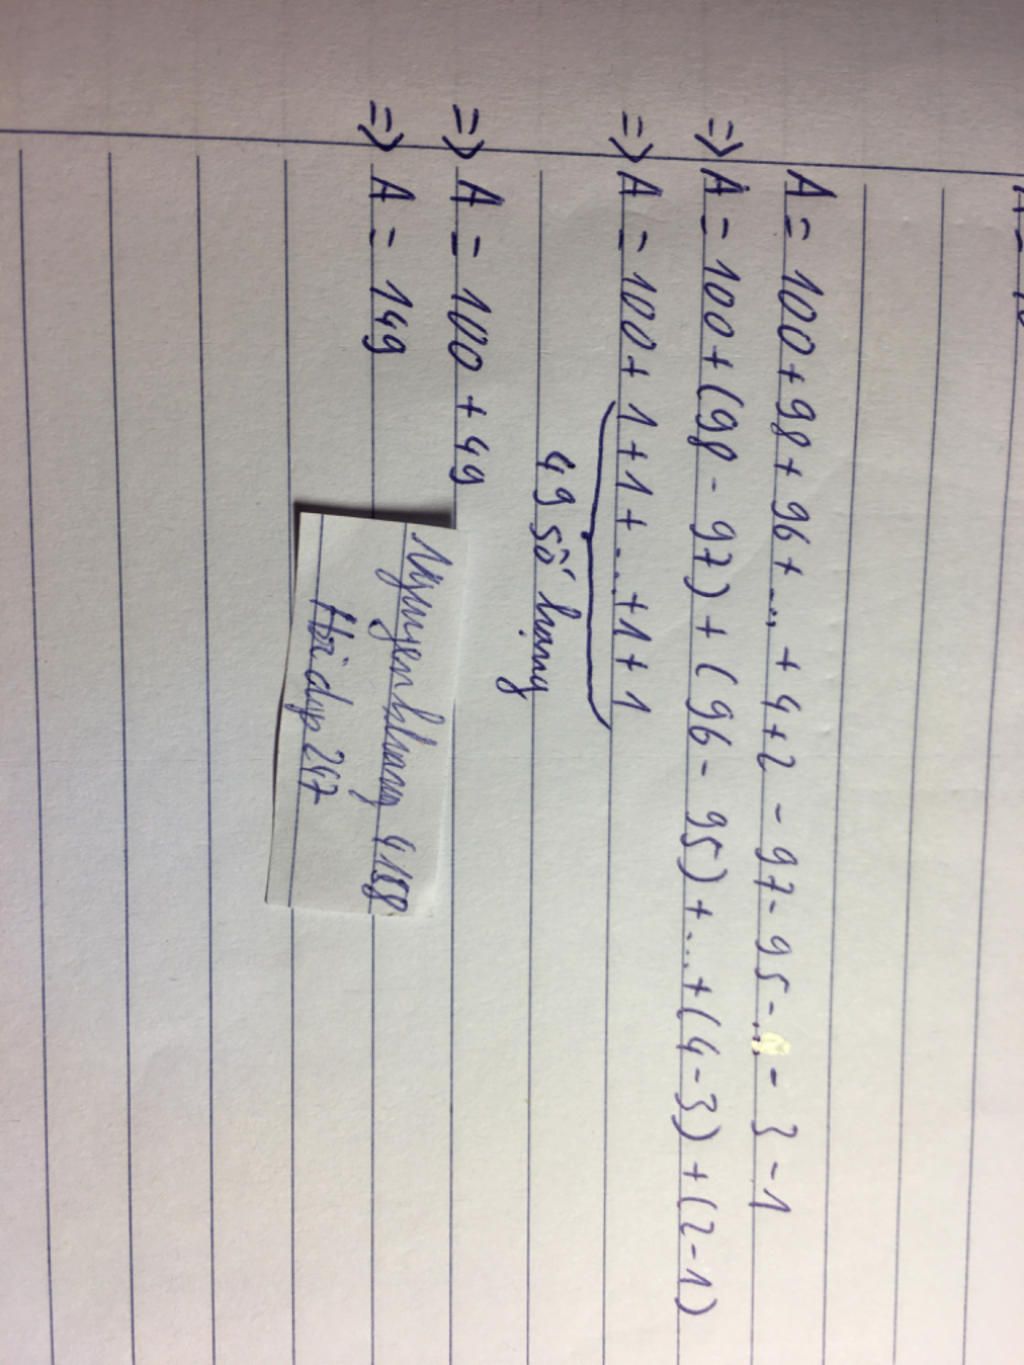 A = 100 + 98 + 96 + ... + 4 + 2 - 97 - 95 - ... - 3 - 1
=> A = 100 + (98 - 97) + (96 - 95) + ... + (4 - 3) + (2 - 1)
=> A = 100 + 1 + 1 + ... + 1 + 1
49 số hạng
=> A = 100 + 49
=> A = 149
Nguyenkhang 4158
Hoidap247